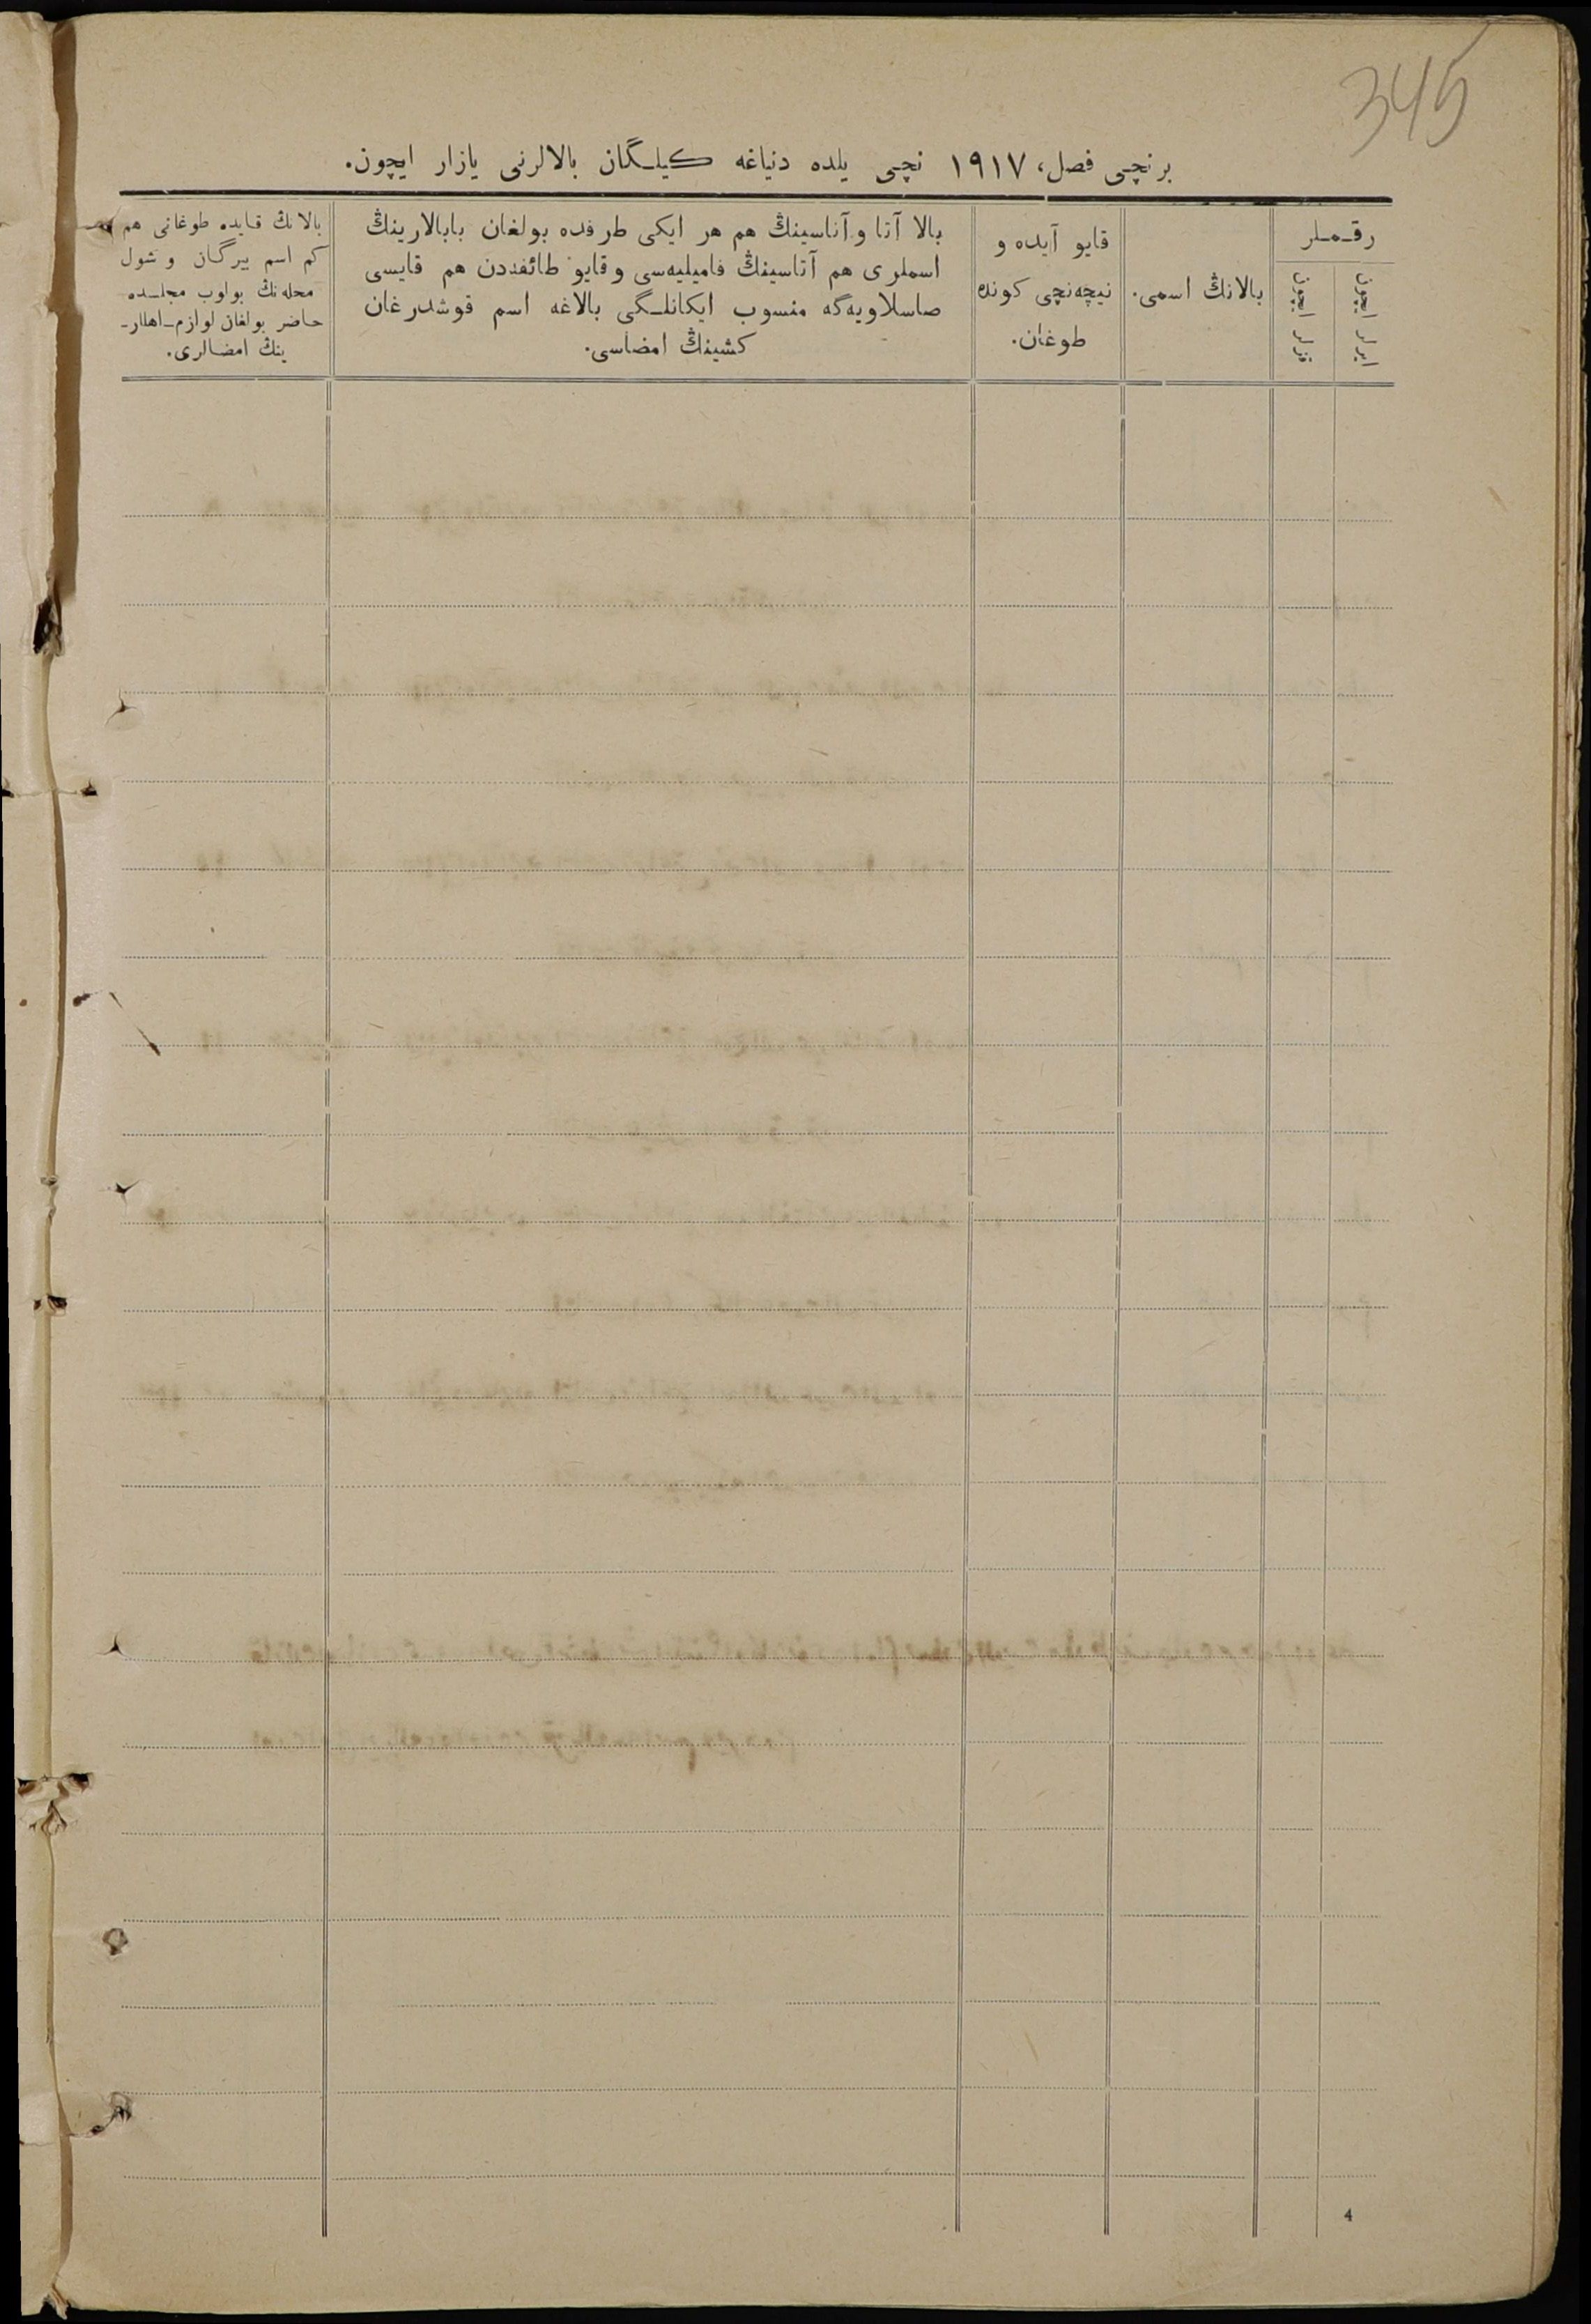 345
برنچی فصل، ١٩١٧ نچی یلده دنیاغه کیلگان بالالرنی یازار ایچون.
رقملر
ایرلر ایچون
قزلر ایچون
بالانڭ اسمی.
قایو آیده و
نیچه‌نچی کونده
طوغان.
بالا آتا و آناسینڭ هم هر ایکی طرفده بولغان بابالارینڭ
اسملری هم آتاسینڭ فامیلیه‌سی و قایو طائفه‌دن هم قایسی
صاسلاویه‌گه منسوب ایکانلگی بالاغه اسم قوشدرغان
کشینڭ امضاسی.
بالانڭ قایده طوغانی هم
کم اسم بیرگان و شول
محله‌نڭ بولوب مجلسده
حاضر بولغان لوازم-اهللر-
ینڭ امضالری.
4